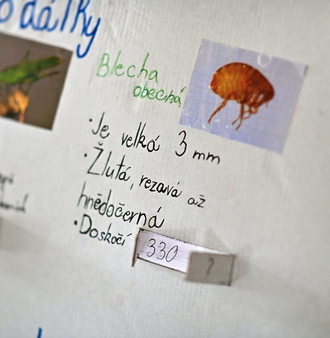 dálky
Blecha
obecná
• Je velká 3 mm
• Žlutá, rezavá až
hnědočerná
• Doskočí 330 ?